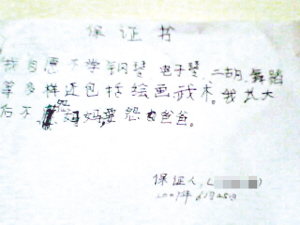 保证书
我自愿不学钢琴 电子琴、二胡、舞蹈
等多样还包括绘画武术。我长大
后不怨妈妈 怨 爸爸。
保证人:(